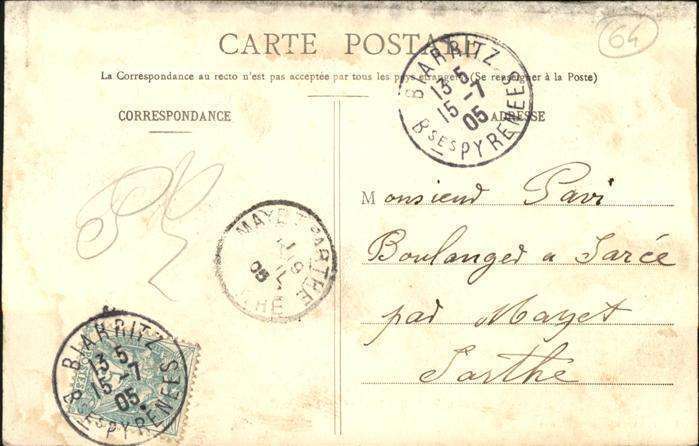 64
CARTE POSTALE
La Correspondance au recto n'est pas acceptée par tous les pays étrangers (Se renseigner à la Poste)
CORRESPONDANCE
ADRESSE
BIARRITZ
13 5
15 -7
05
Bses PYRENEES
Monsieud Pavi
Boulanger a Sarcé
pad Mayet
Sarthe
MAYET SARTHE
05
BIARRITZ
13 5
15 -7
05
Bses PYRENEES